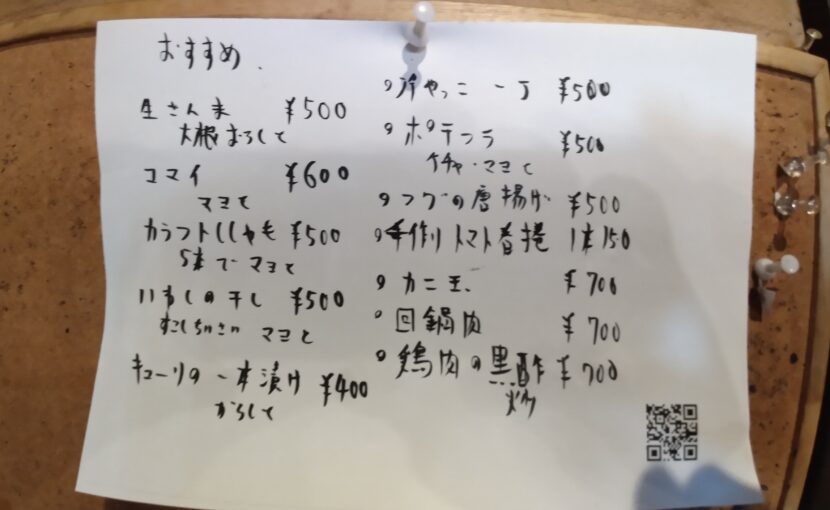 おすすめ
生さんま ¥500
大根おろしで
コマイ ¥600
マヨで
カラフトししゃも ¥500
5本で マヨで
いわしの干し ¥500
すこしちいさい マヨで
キューリの一本漬け ¥400
からしで
冷やっこ 一丁 ¥500
ポテフラ ¥500
ケチャ・マヨで
フグの唐揚げ ¥500
手作りトマト春捲 1本150
カニ玉 ¥700
回鍋肉 ¥700
鶏肉の黒酢 ¥700
炒め